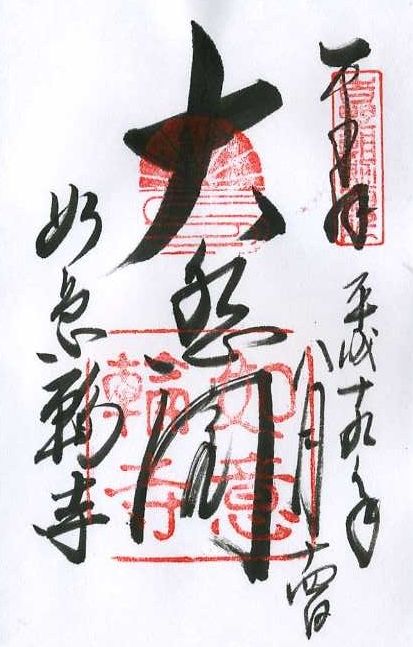 平成十九年
八月十四日
大悲閣
如意輪寺
如意
輪寺